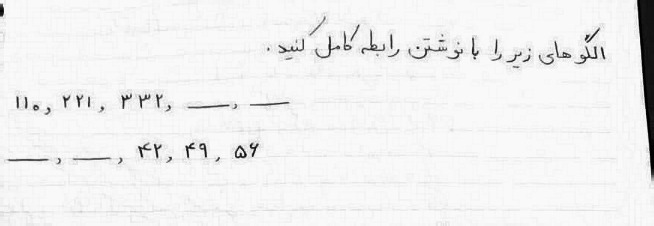 الگوهای زیر را با نوشتن رابطه کامل کنید.
۱۱۰, ۲۲۱, ۳۳۲, __, __
__, __, ۴۲, ۴۹, ۵۶